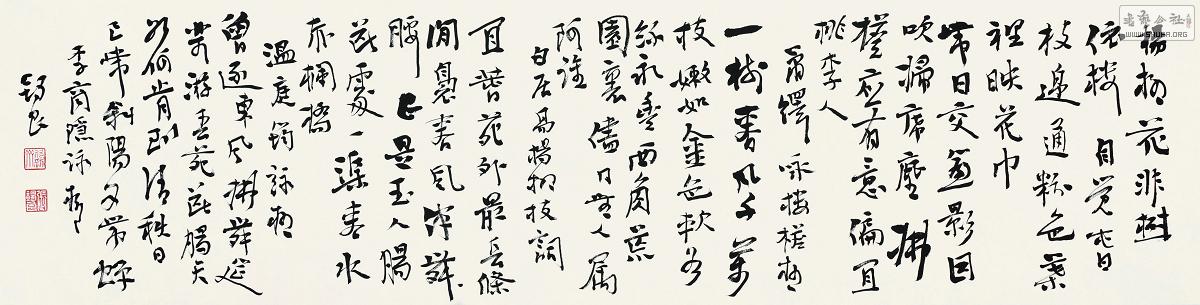 楊柳花非樹
依樓自覺春
枝邊通粉色葉
裡映花巾
帶日交簾影因
吹掃席塵拂
檐應有意偏宜
桃李人
蕭繹咏樓檐柳
一樹春風千萬
枝嫩如金色軟於
絲永豐西角荒
園裏儘日無人屬
阿誰
白居易楊柳枝詞
宜春苑外最長條
閒裊春風伴舞
腰正是玉人腸
斷處一渠春水
赤欄橋
溫庭筠詠柳
曾逐東風拂舞筵
樂游春苑斷腸天
如何肯到清秋日
已帶斜陽又帶蟬
李商隱詠柳